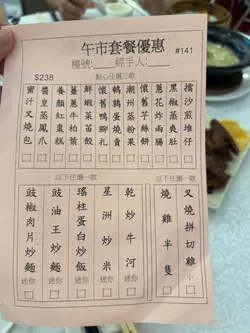 午市套餐優惠
#141
檯號:____經手人:____
$238
點心任選三款
蜜汁叉燒包
薑皇蒸鳳爪
養顏紅棗糕
薑蔥牛柏葉
鮮蝦菜苗餃
鵪鶉蛋燒賣
潮州蒸粉果
懷舊芋絲餅
蔥花炸兩腸
黑椒蒸爽肚
擂沙煎堆仔
以下任選一款
豉椒肉片炒麵
迷你
豉油王炒麵
迷你
瑤柱蛋白炒飯
迷你
星洲炒米
迷你
乾炒牛河
迷你
以下任選一款
燒雞半隻
叉燒拼切雞
小